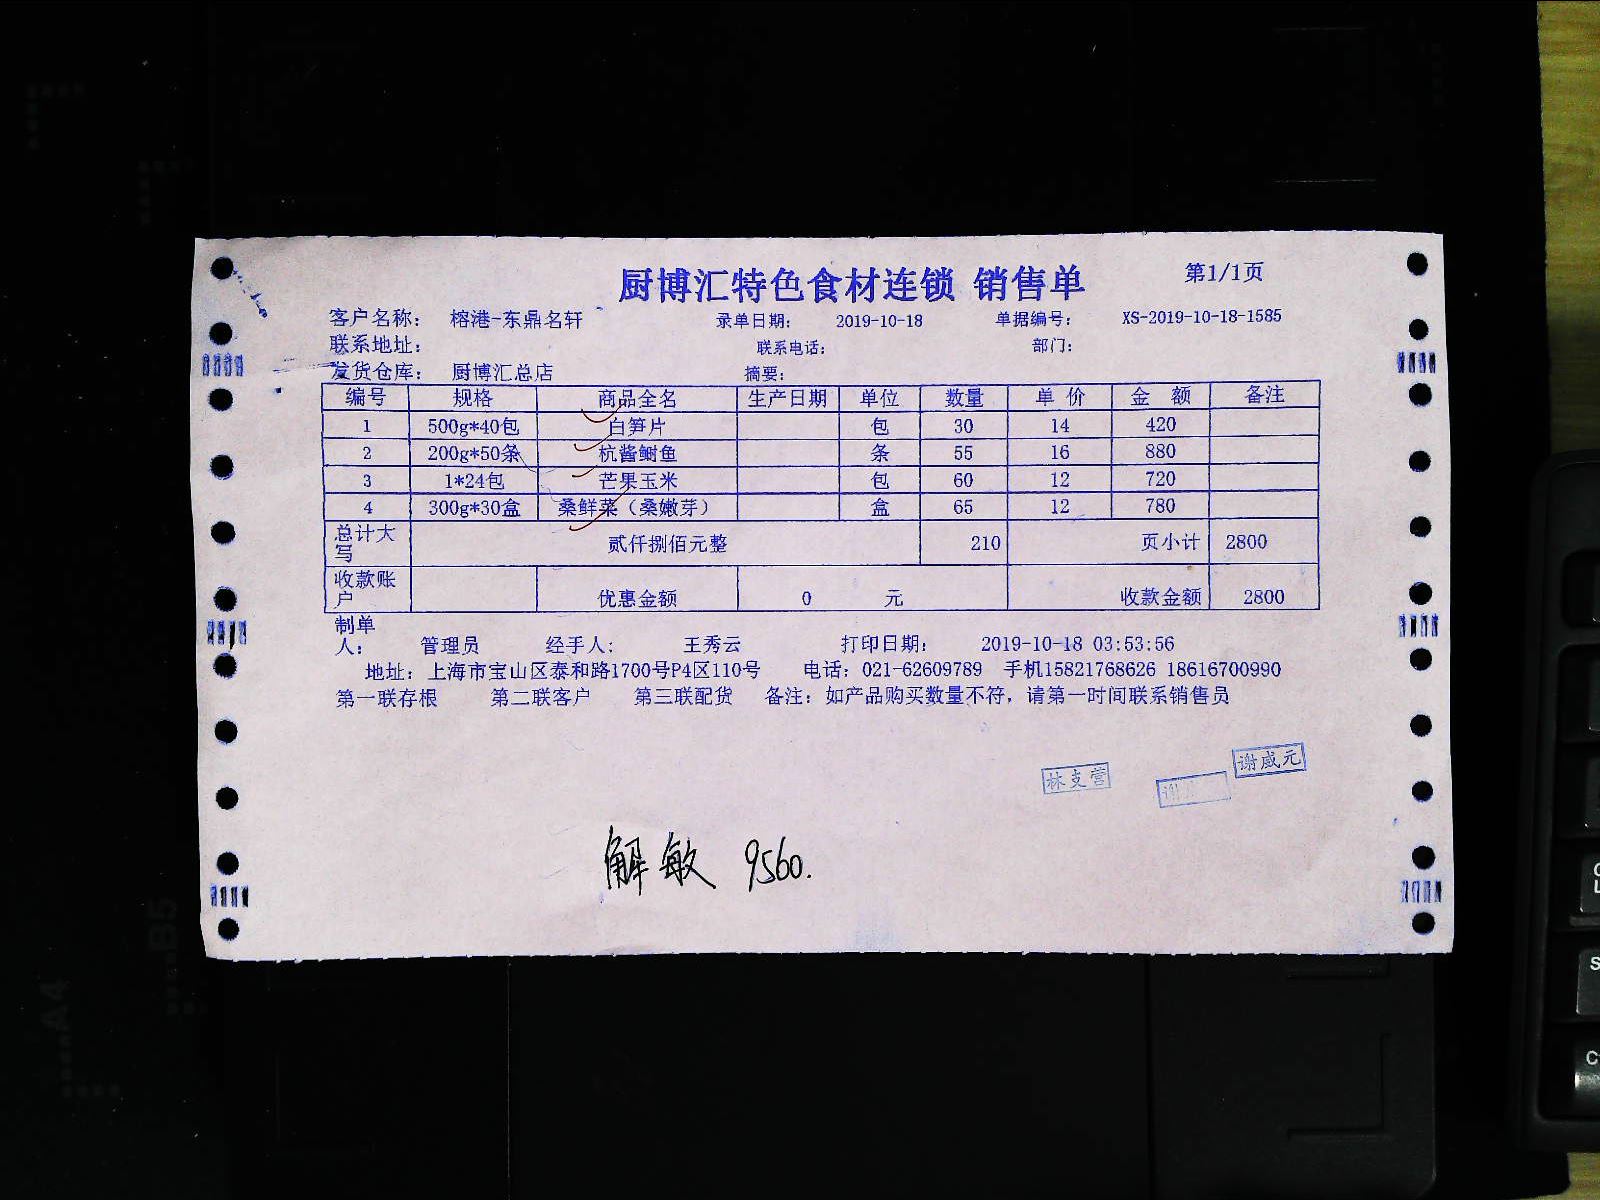 厨博汇特色食材连锁 销售单 第1/1页
客户名称： 榕港-东鼎名轩 录单日期： 2019-10-18 单据编号： XS-2019-10-18-1585
联系地址： 联系电话： 部门：
发货仓库： 厨博汇总店 摘要：
编号 规格 商品全名 生产日期 单位 数量 单 价 金 额 备注
1 500g*40包 白笋片 包 30 14 420
2 200g*50条 杭酱鲥鱼 条 55 16 880
3 1*24包 芒果玉米 包 60 12 720
4 300g*30盒 桑鲜菜（桑嫩芽） 盒 65 12 780
总计大写 贰仟捌佰元整 210 页小计 2800
收款账户 优惠金额 0 元 收款金额 2800
制单人： 管理员 经手人： 王秀云 打印日期： 2019-10-18 03:53:56
地址：上海市宝山区泰和路1700号P4区110号 电话：021-62609789 手机15821768626 18616700990
第一联存根 第二联客户 第三联配货 备注：如产品购买数量不符，请第一时间联系销售员
谢威元
林支营
谢
解敏 9560.
A4
B5